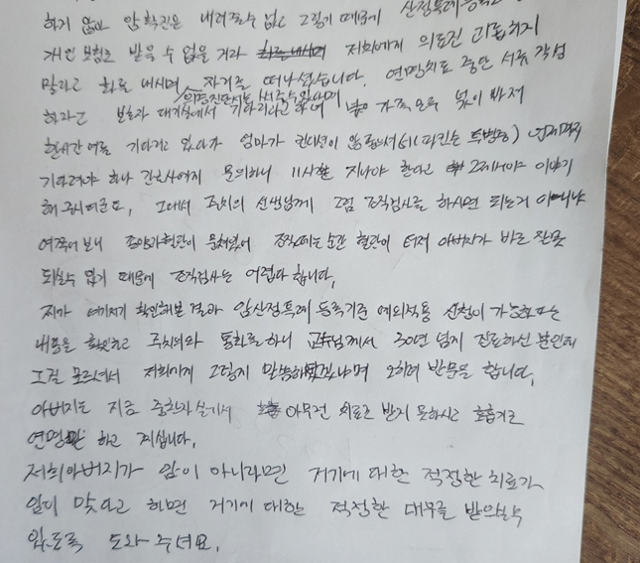 하지 않아 암 확진은 내려줄수 없고 그렇기 때문에 산정특례등록
개인 보험도 받을 수 없을 거라 저희에게 의료진 괴롭히지
말라고 화를 내시며 자리를 떠나셨습니다. 연명치료 중단 서류 작성
하라고 보호자 대기실에서 기다리라고 하여 가족 모두 넋이 빠져
한시간여를 기다리고 있다가 엄마가 컨디션이 않좋으셔서(파킨슨 투병중) 언제까지
기다려야 하나 간호사에게 문의하니 11시는 지나야 한다고 그제서야 이야기
해 주시더군요, 그래서 주치의 선생님께 그럼 조직검사를 하시면 되는거 아니냐
여쭈어 보니 종양과 혈관이 뭉쳐있어 조직떼는 순간 혈관이 터져 아버지가 바로 잘못
되실수 있기 때문에 조직검사는 어렵다 합니다.
제가 여기저기 확인해본 결과 암산정특례 등록기준 예외적용 신청이 가능하다는
내용을 확인하고 주치의와 통화를 하니 교수님께서 30년 넘게 진료하신 분인데
그걸 모르셔서 저희에게 그렇게 말씀하셨겠냐며 오히려 반문을 합니다.
아버지는 지금 중환자실에서 아무런 치료도 받지 못하시고 호흡기로
연명만 하고 계십니다.
저희아버지가 암이 아니라면 거기에 대한 적정한 치료가
암이 맞다고 하면 거기에 대한 적정한 대우를 받으실수
있도록 도와 주셔요.